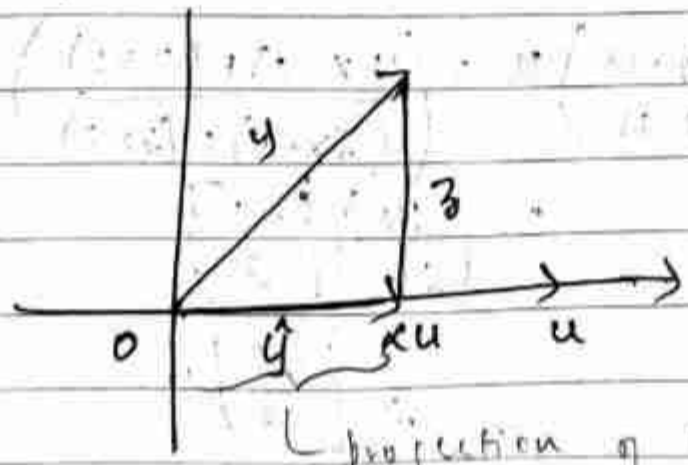 y
z
0 ŷ αu u
projection of